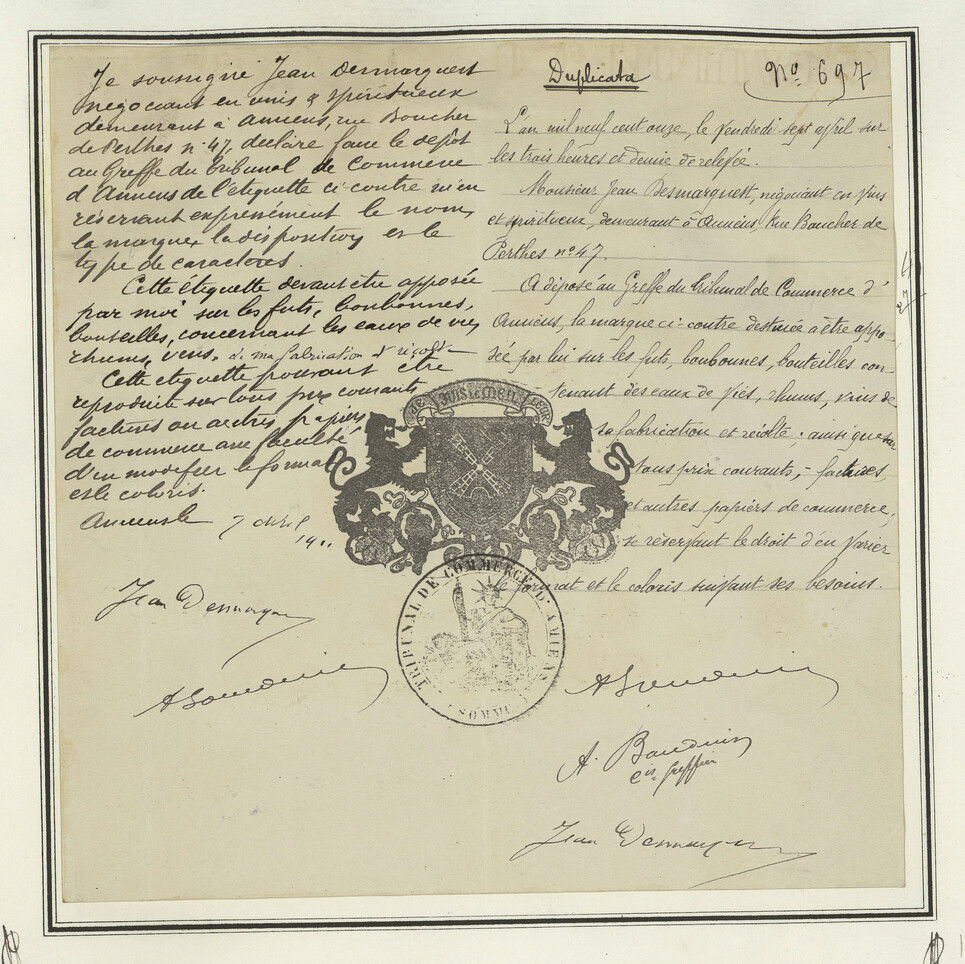 Je soussigné Jean Desmarquest
négociant en vins & spiritueux
demeurant à Amiens, rue Boucher
de Perthes n° 47, déclare faire le dépôt
au Greffe du Tribunal de Commerce
d'Amiens de l'étiquette ci contre m'en
réservant expressément le nom,
la marque, la disposition et le
type de caractères.
Cette étiquette devant être apposée
par moi sur les futs, bonbonnes,
bouteilles, concernant les eaux de vie,
rhums, vins. de ma fabrication & récolte
Cette étiquette pouvant être
reproduite sur tous prix courants
factures ou autres papiers
de commerce avec faculté
d'en modifier le format
et le coloris.
Amiens le 7 avril
1911
Jean Desmarquest
Duplicata
N° 697
L'an mil neuf cent onze, le vendredi sept april sur
les trois heures et demie de relevée.
Monsieur Jean Desmarquest, négociant en vins
et spiritueux, demeurant à Amiens, Rue Boucher de
Perthes n° 47.
A déposé au Greffe du Tribunal de Commerce d'
Amiens, la marque ci-contre destinée a être appo-
sée par lui sur les futs, bonbonnes, bouteilles con-
tenant des eaux de vies, rhums, vins de
sa fabrication et récolte. ainsi que sur
tous prix courants, factures,
et autres papiers de commerce,
se réservant le droit d'en varier
le format et le coloris suivant ses besoins.
TRIBUNAL DE COMMERCE D'AMIENS
SOMME
A. Baudouin
Cis Greffier
Jean Desmarquest